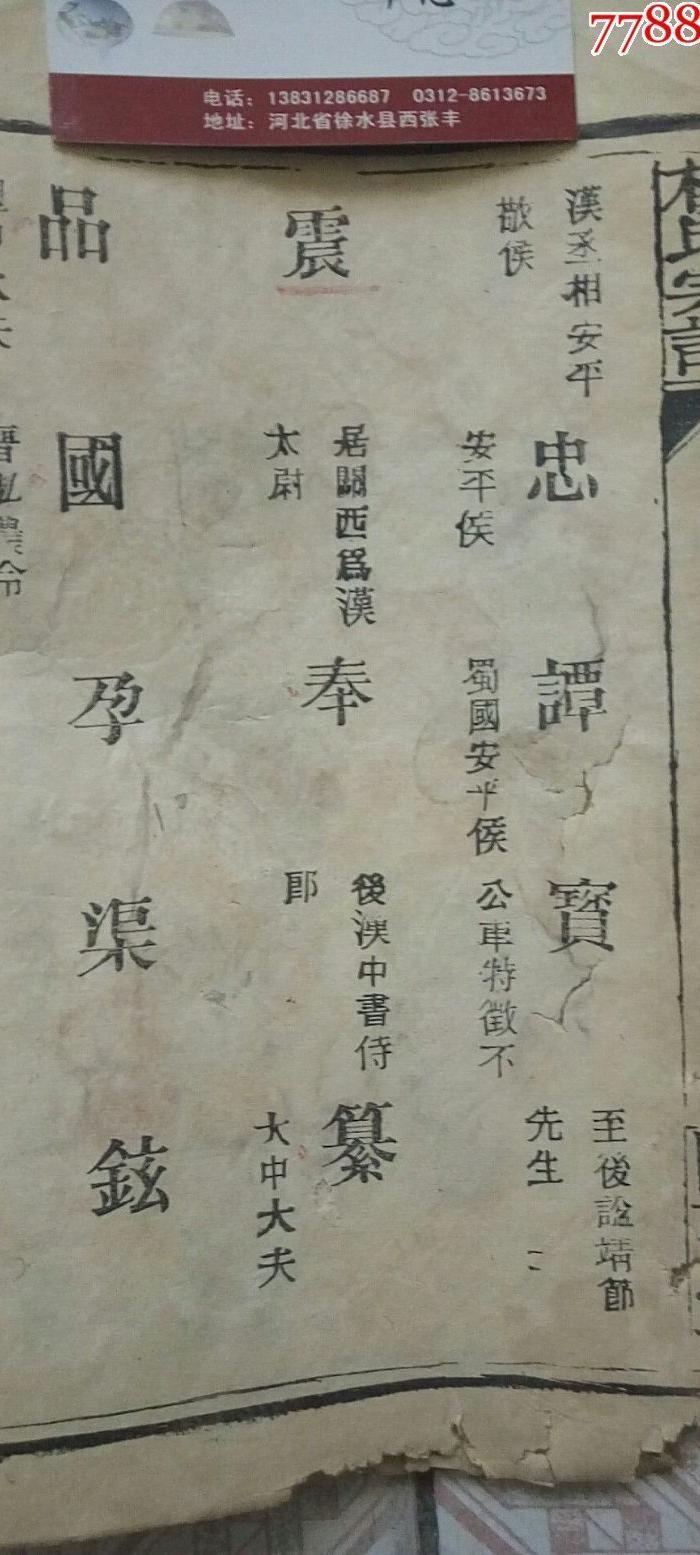 7788
电话：13831286687 0312-8613673
地址：河北省徐水县西张丰
楊氏宗譜
漢丞相安平
敬侯
忠
安平侯
譚
蜀國安平侯
寳
公車特徵不
至後諡靖節
先生
震
居関西爲漢
太尉
奉
後漢中書侍
郎
纂
大中大夫
品
國
孕
渠
鉉